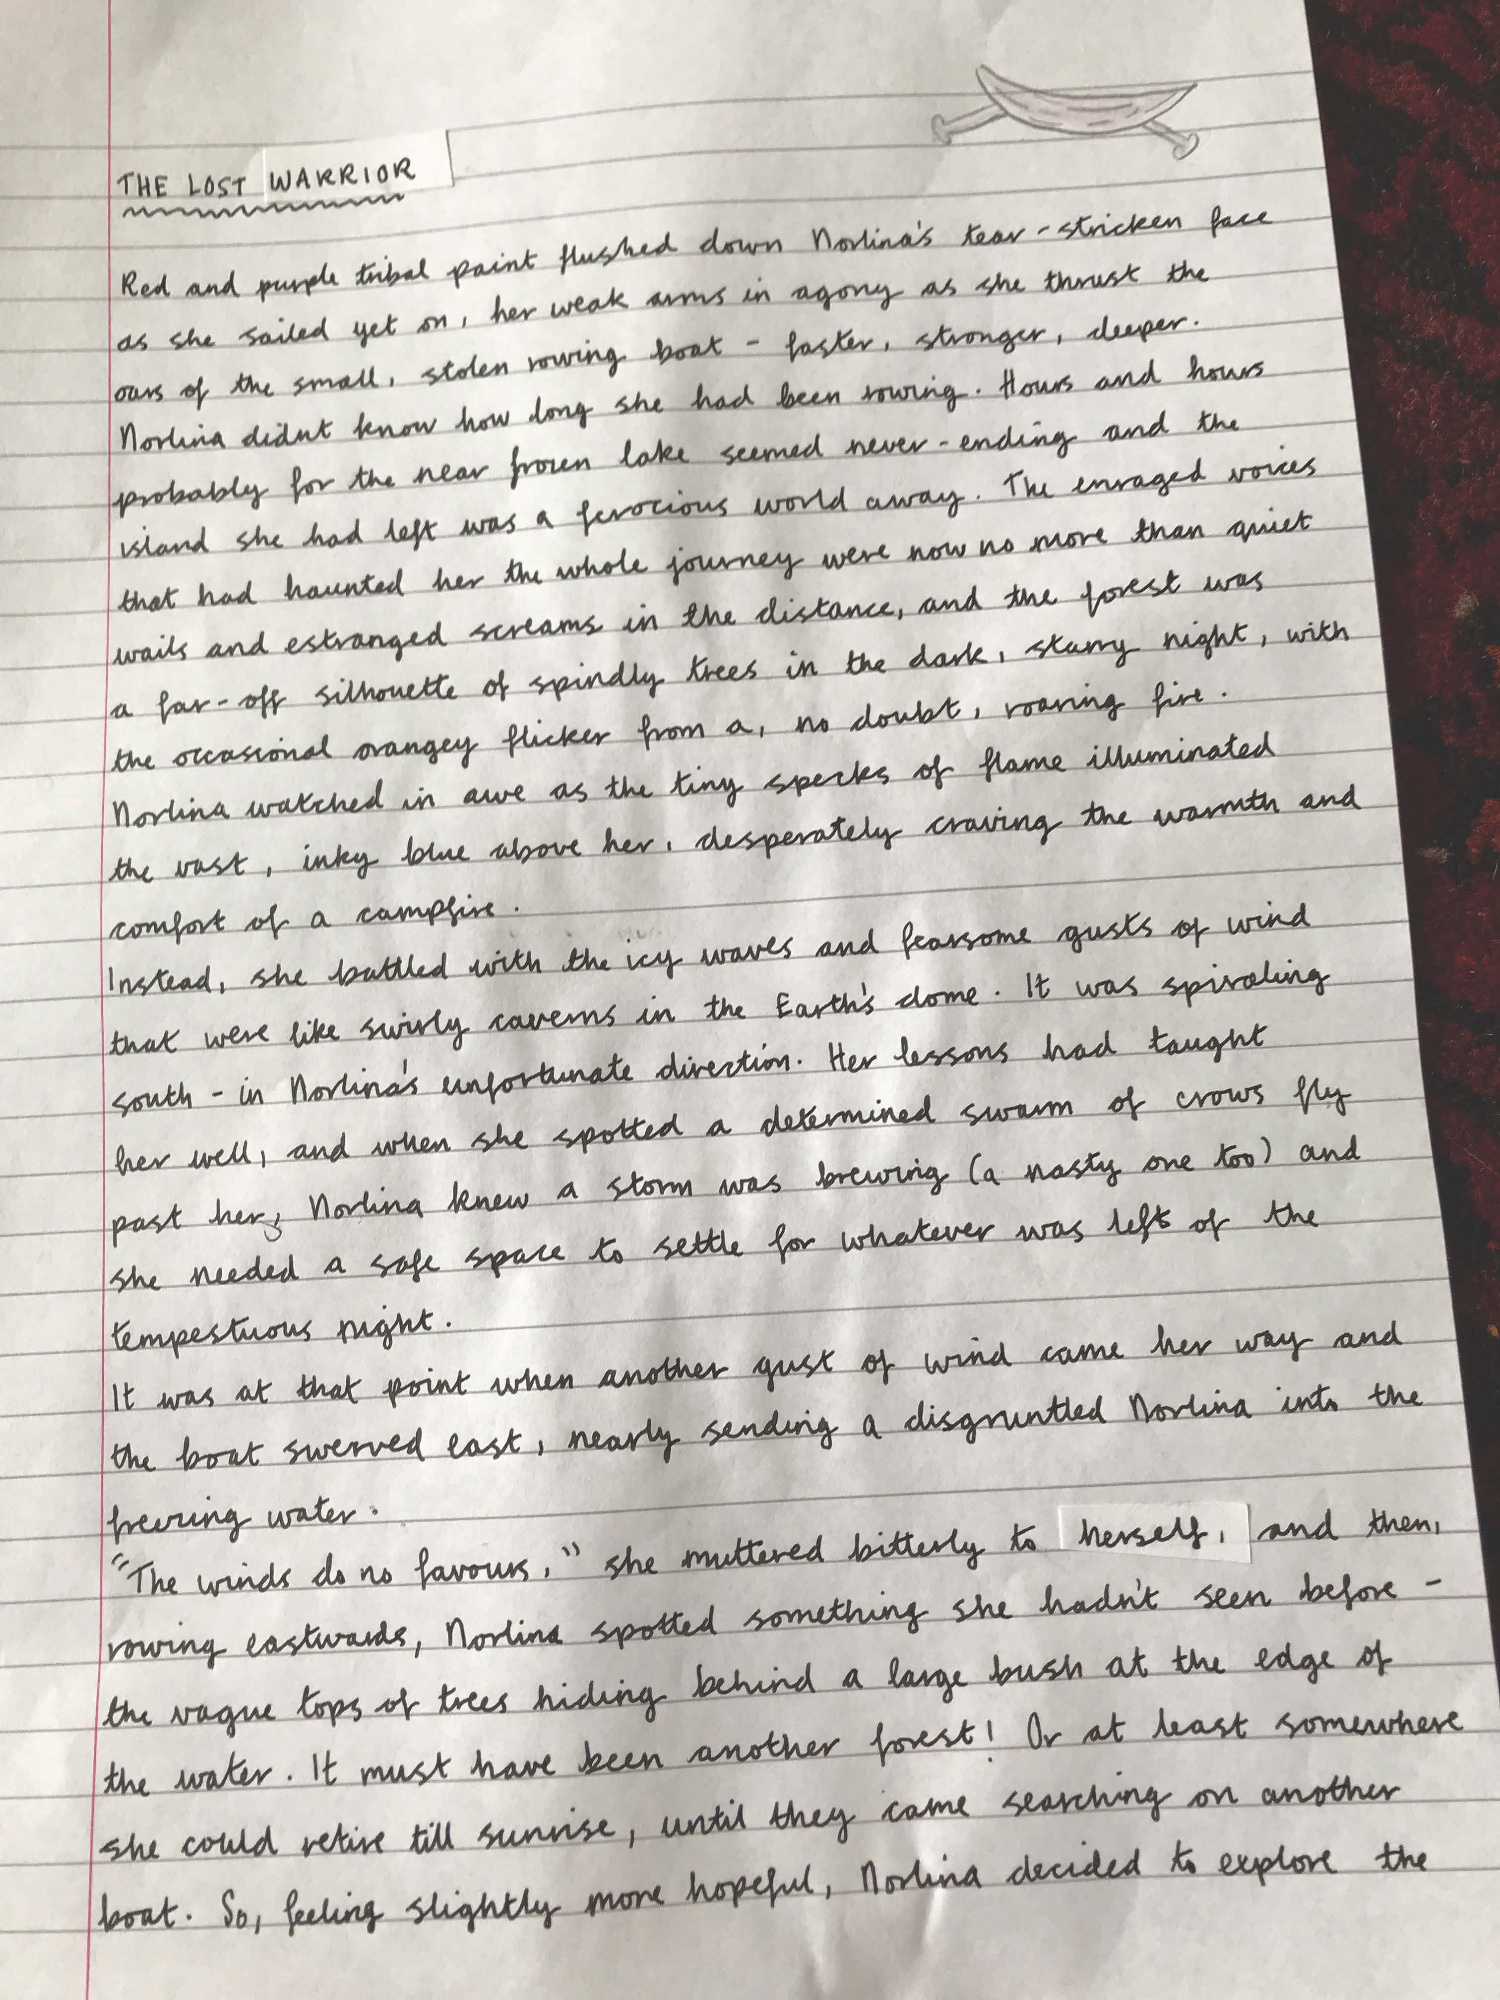 THE LOST WARRIOR
Red and purple tribal paint flushed down Norlina's tear-stricken face
as she sailed yet on, her weak arms in agony as she thrust the
oars of the small, stolen rowing boat - faster, stronger, deeper.
Norlina didnt know how long she had been rowing. Hours and hours
probably for the near frozen lake seemed never-ending and the
island she had left was a ferocious world away. The enraged voices
that had haunted her the whole journey were now no more than quiet
wails and estranged screams in the distance, and the forest was
a far-off silhouette of spindly trees in the dark, starry night, with
the occasional orangey flicker from a, no doubt, roaring fire.
Norlina watched in awe as the tiny specks of flame illuminated
the vast, inky blue above her, desperately craving the warmth and
comfort of a campfire.
Instead, she battled with the icy waves and fearsome gusts of wind
that were like swirly caverns in the Earth's dome. It was spiraling
south - in Norlina's unfortunate direction. Her lessons had taught
her well, and when she spotted a determined swarm of crows fly
past her, Norlina knew a storm was brewing (a nasty one too) and
she needed a safe space to settle for whatever was left of the
tempestuous night.
It was at that point when another gust of wind came her way and
the boat swerved east, nearly sending a disgruntled Norlina into the
freezing water.
"The winds do no favours," she muttered bitterly to herself, and then,
rowing eastwards, Norlina spotted something she hadn't seen before -
the vague tops of trees hiding behind a large bush at the edge of
the water. It must have been another forest! Or at least somewhere
she could retire till sunrise, until they came searching on another
boat. So, feeling slightly more hopeful, Norlina decided to explore the